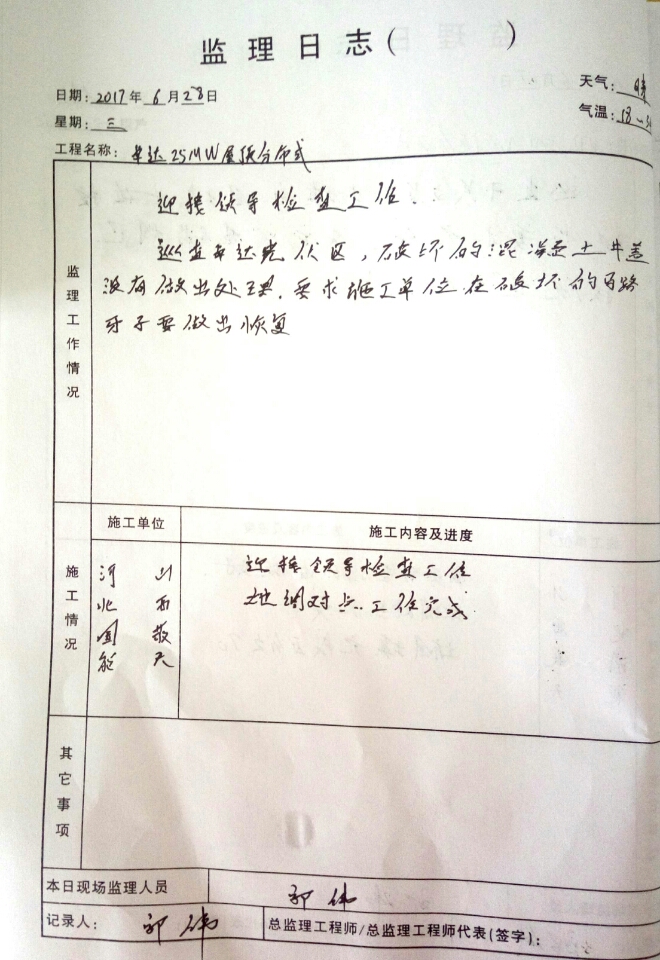 监理日志( )
日期: 2017年6月28日
天气: 晴
星期: 三
气温: 18~
工程名称: 达25MW屋顶分布式
监理工作情况
迎接领导检查工作.
巡查 达光伏区,破坏的混凝土井盖
没有做出处理.要求施工单位在破坏的 路
牙子要做出恢复
施工情况
施工单位
施工内容及进度
河北 能
山西敬天
迎接领导检查工作
地调对点工作完成
其它事项
本日现场监理人员
郭伟
记录人: 郭伟
总监理工程师/总监理工程师代表(签字):